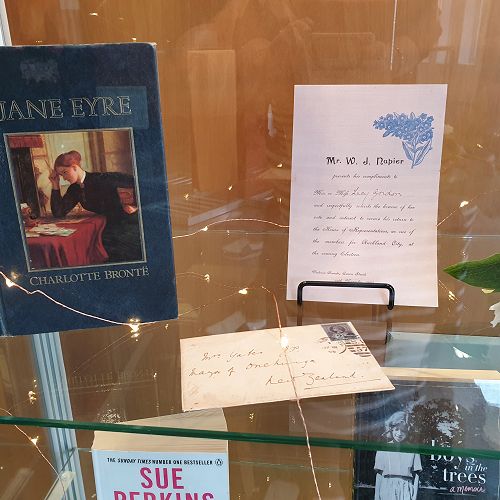 JANE EYRE
CHARLOTTE BRONTË
Mr. W. J. Napier
presents his compliments to
and respectfully solicits the honour of her
vote and interest to secure his return to
the House of Representatives, as one of
the members for Auckland City, at
the coming Election.
Mrs Yates
Mayor of Onehunga
New Zealand
THE SUNDAY TIMES NUMBER ONE BESTSELLER
SUE
PERKINS
boys
in the
trees
a memoir